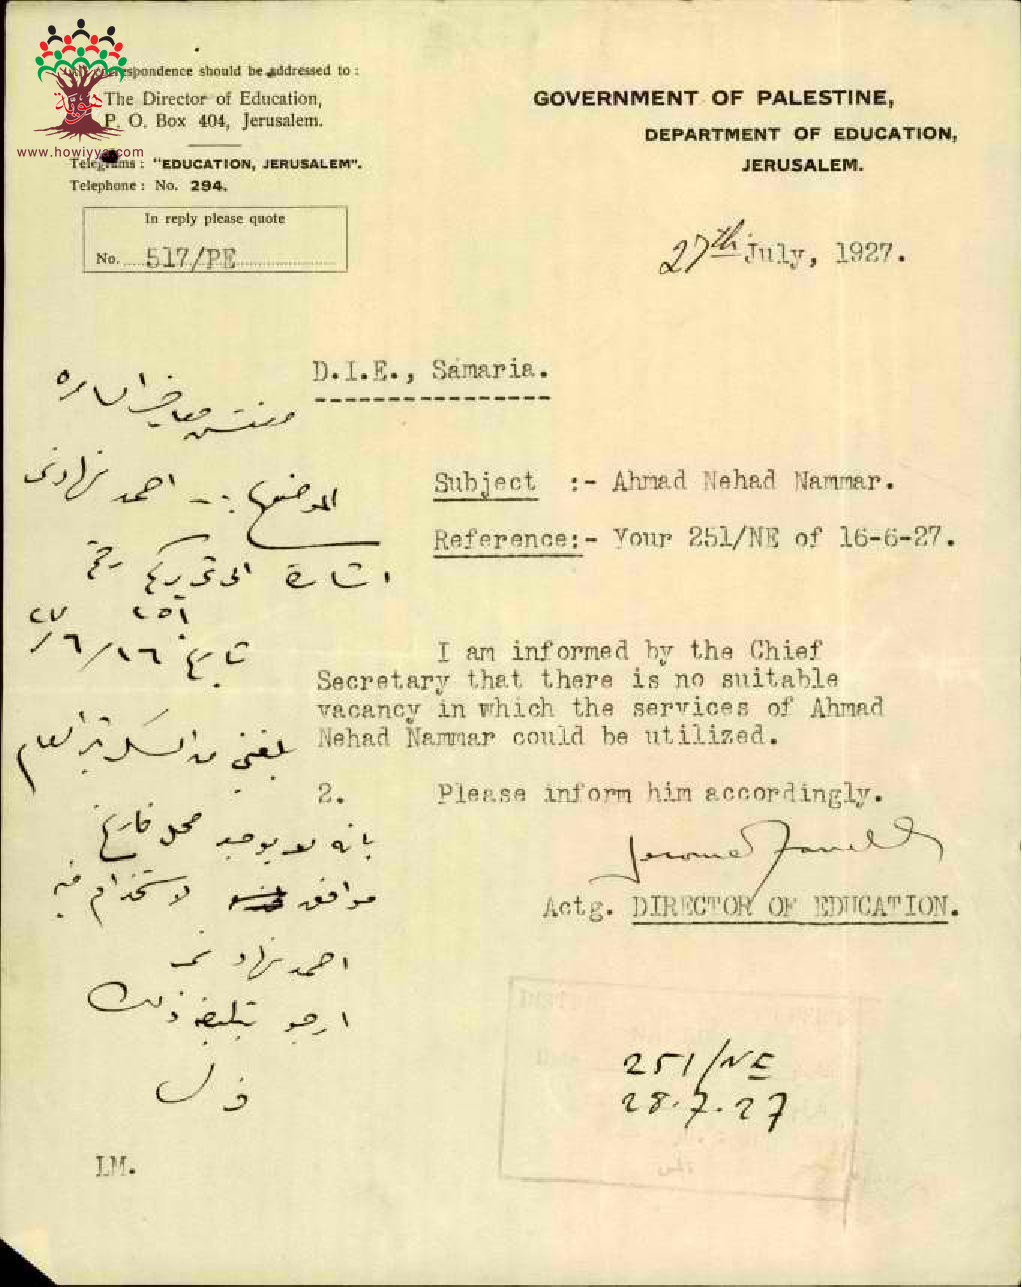 correspondence should be addressed to :
The Director of Education,
P. O. Box 404, Jerusalem.
Telegrams : "EDUCATION, JERUSALEM".
Telephone : No. 294.
In reply please quote
No. 517/PE
هوية
www.howiyya.com
GOVERNMENT OF PALESTINE,
DEPARTMENT OF EDUCATION,
JERUSALEM.
27th July, 1927.
D.I.E., Samaria.
Subject :- Ahmad Nehad Nammar.
Reference:- Your 251/NE of 16-6-27.
I am informed by the Chief
Secretary that there is no suitable
vacancy in which the services of Ahmad
Nehad Nammar could be utilized.
2. Please inform him accordingly.
Jerome Farrell
Actg. DIRECTOR OF EDUCATION.
مفتش معارف السامره
الموضوع :- احمد نهاد نمر
اشارة الى تحريركم رقم
٢٥١
تاريخ ١٦/٦/٢٧
بلغني من السكرتير العام
بانه لا يوجد محل فارغ
موافق لاستخدام فيه
احمد نهاد نمر
ارجو تبليغه ذلك
251/NE
28.7.27
LM.